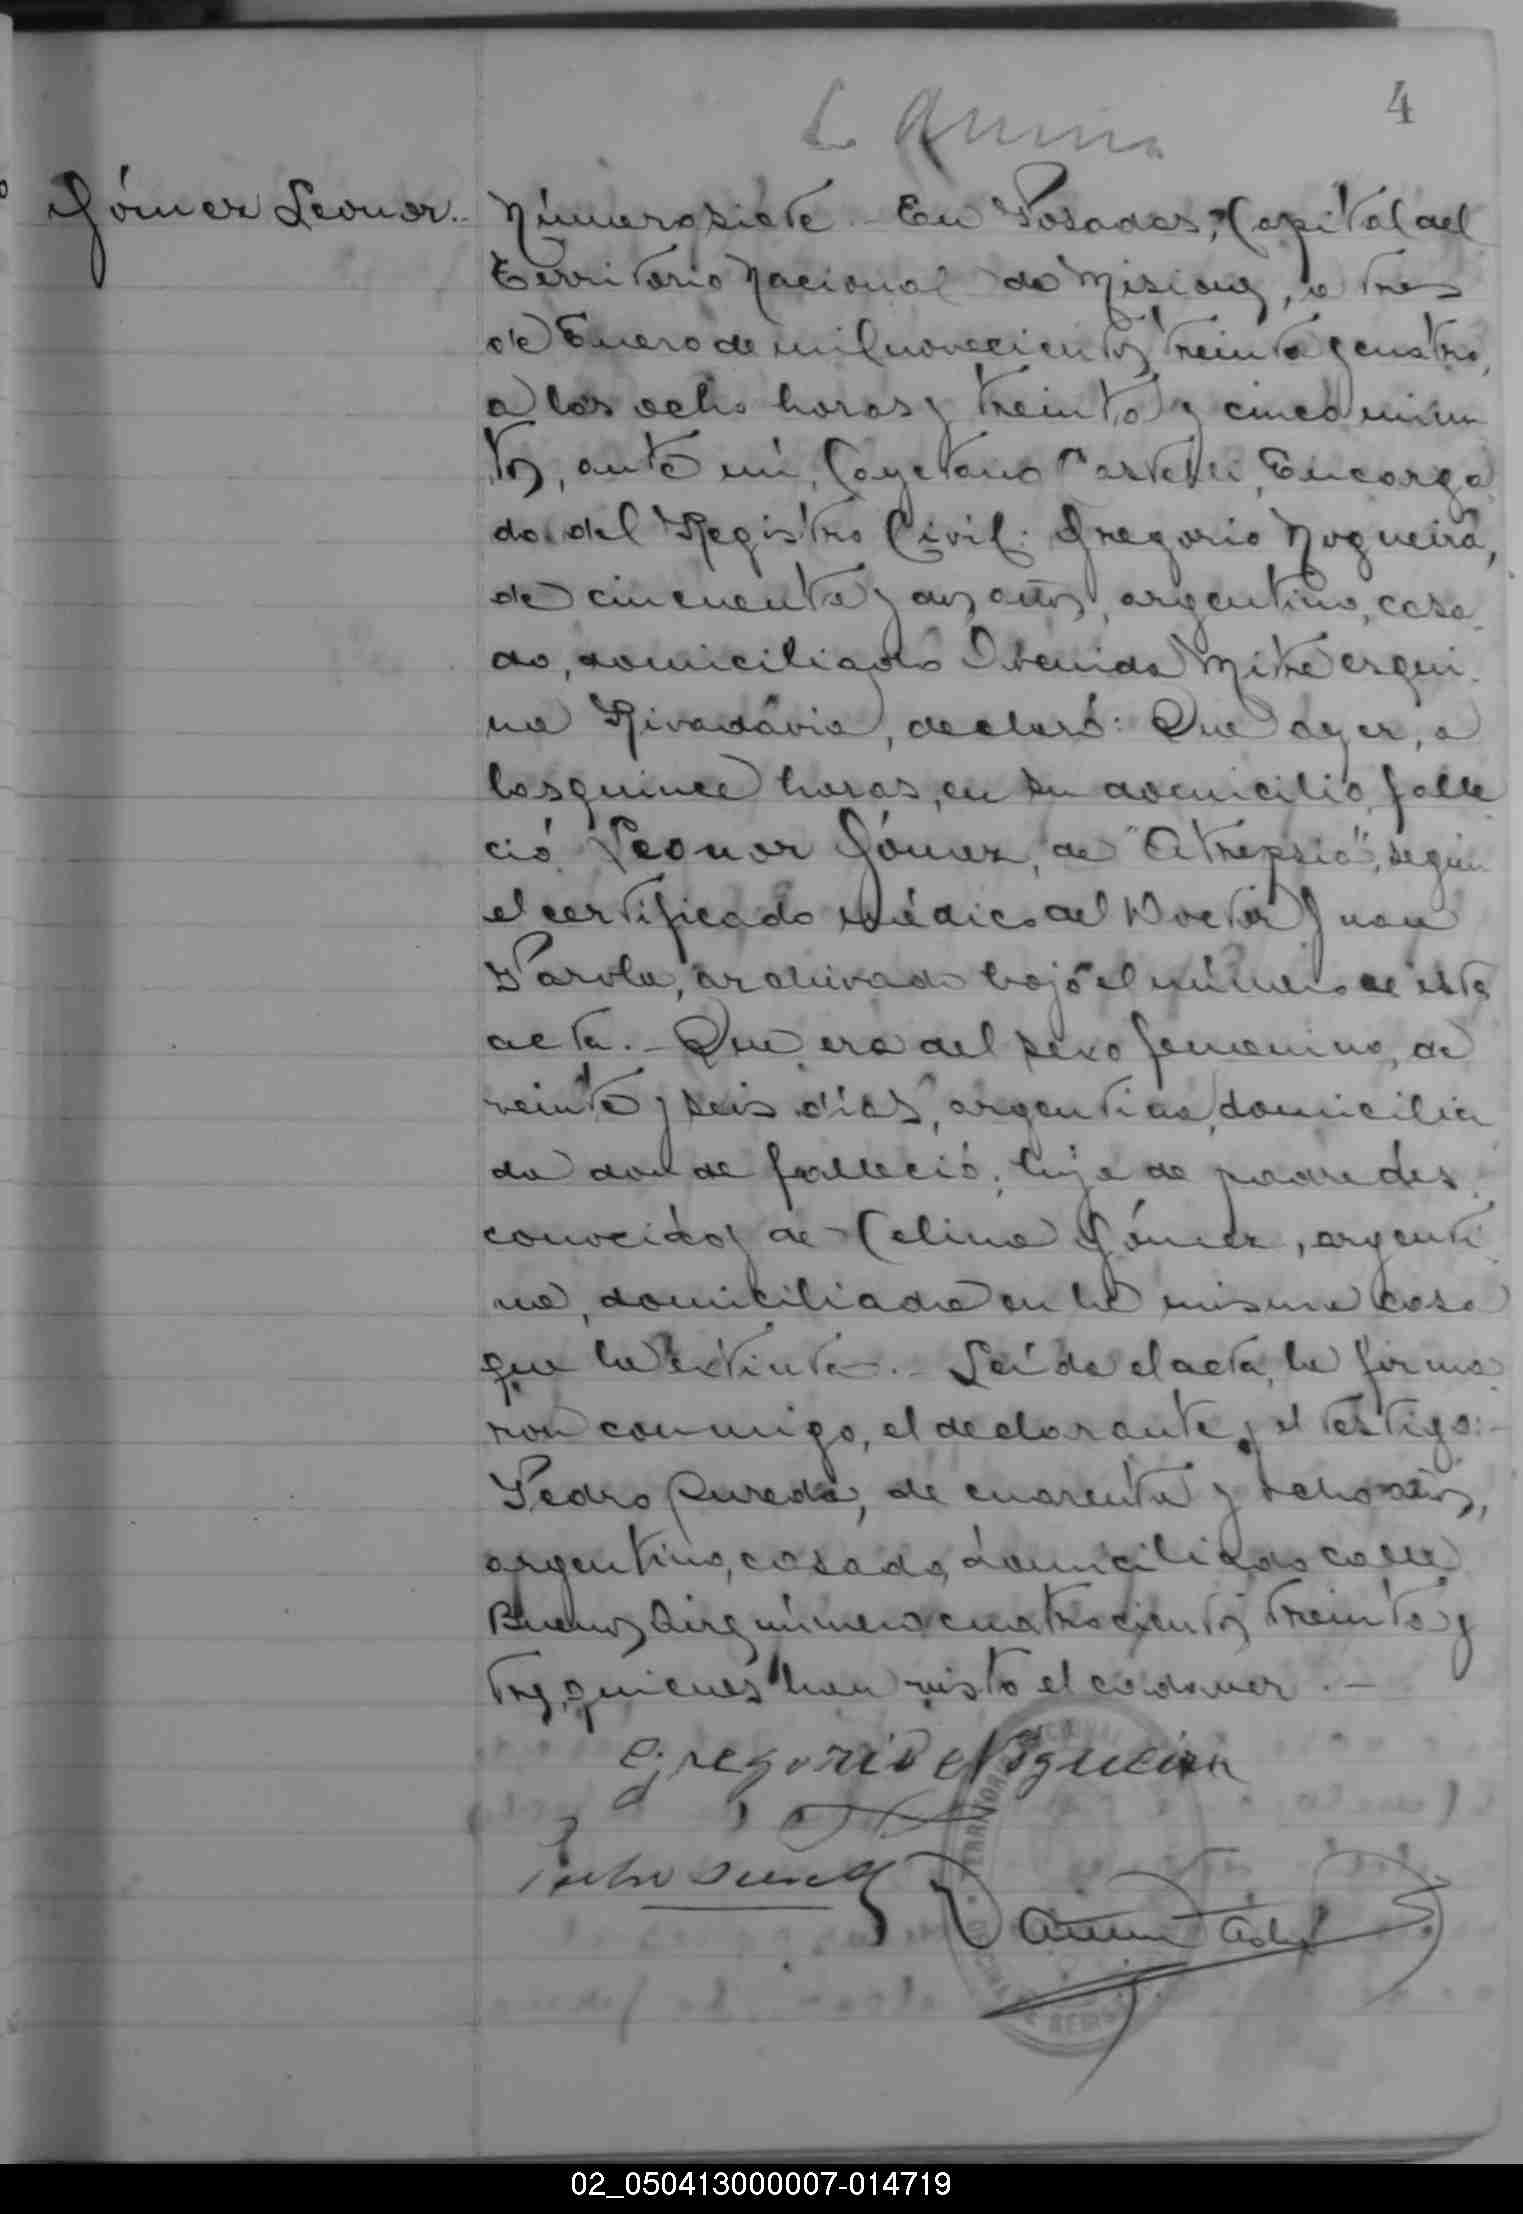 4
Gómez Leonor.
Número siete - En Posadas, Capital del
Territorio Nacional de Misiones, a tres
de Enero de mil novecientos treinta y cuatro,
a las ocho horas y treinta y cinco minu
tos, ante mí, Cayetano Castelli, Encarga
do del Registro Civil: Gregorio Nogueira,
de cincuenta y dos años, argentino, casa
do, domiciliado Avenida Mitre esqui
na Rivadavia, declaró: Que ayer, a
las quince horas, en su domicilio falle
ció Leonor Gómez, de "Atrepsia", según
el certificado médico del Doctor Juan
Parola, archivado bajo el número de esta
acta. - Que era del sexo femenino, de
veinte y seis días, argentina, domicilia
da donde falleció; hija de padre des
conocido y de Celina Gómez, argenti
na, domiciliada en la misma casa
que la extinta. - Leída el acta, la firma
ron conmigo, el declarante y el testigo: -
Pedro , de cuarenta y ocho años,
argentino, casado, domiciliado calle
Buenos Aires número cuatrocientos treinta y
tres, quienes han visto el cadaver. -
Gregorio Nogueira
02_050413000007-014719